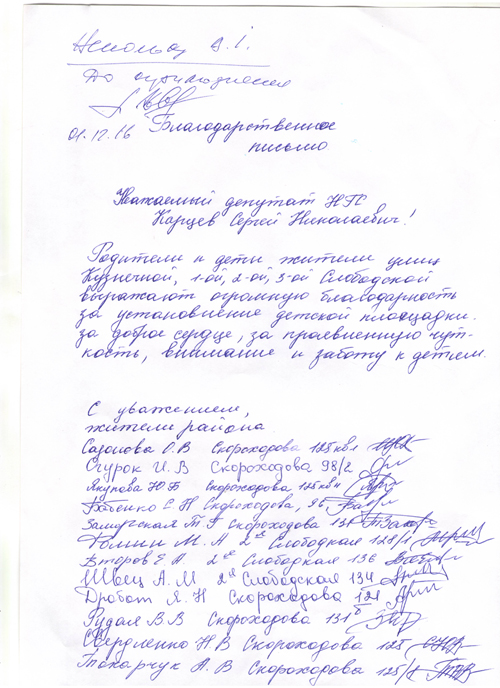 До ознайомлення
01.12.16 Благодарственное
письмо
Уважаемый депутат
Карцев Сергей Николаевич!
Родители и дети жители улиц
Кузнечной, 1-ой, 2-ой, 3-ой Слободской
выражают огромную благодарность
за установление детской площадки.
за доброе сердце, за проявленную чут-
кость, внимание и заботу к детям.
С уважением,
жители района
Сазонова О.В Скороходова 125 кв1
Сгурок И.В Скороходова 98/2
Якупова Ю.В Скороходова 125 кв 4
Бабенко С.Н Скороходова, 96
Скороходова 131
Фомин М.А 2ая Слободкая 129/1
Второв Е.А. 2ая Слободкая 136
Швец А.М 2ая Слободская 134
Дробот Я.Н Скороходова 121
Рудая В.В Скороходова 131
Свердленко Н В Скороходова 125
Токарчук А.В Скороходова 125/2